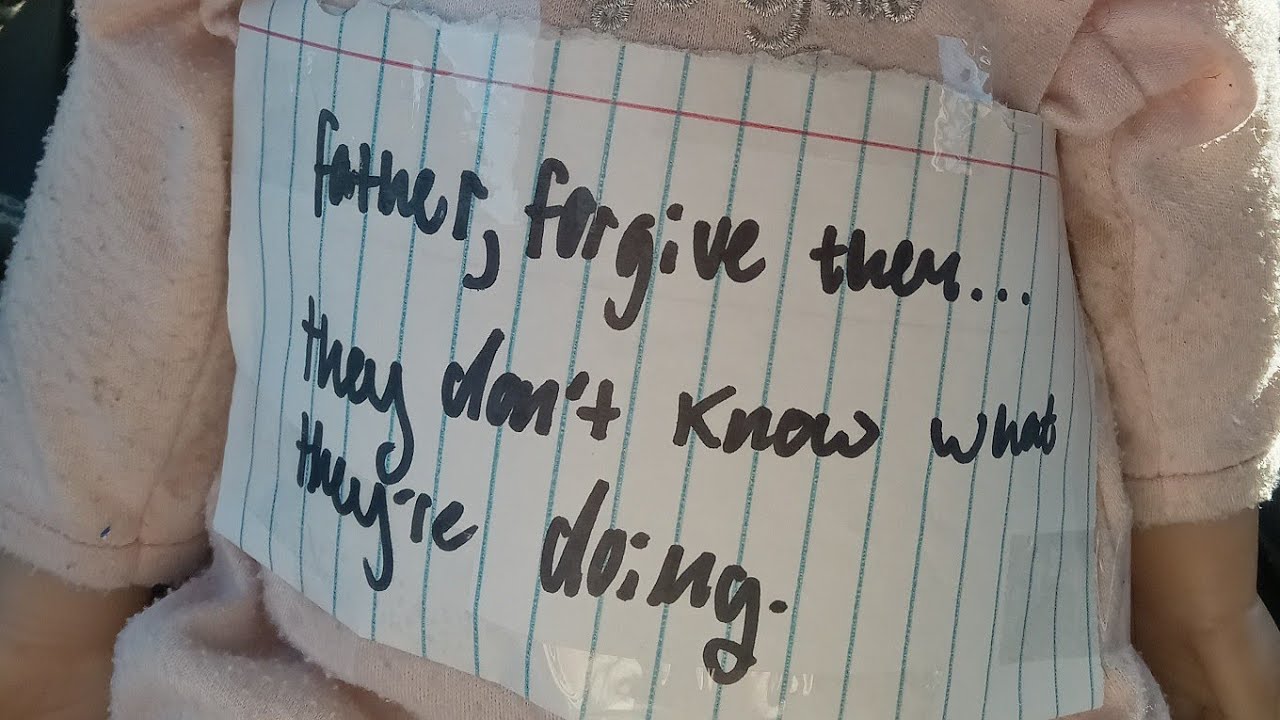 father, forgive them...
they don't know what
they're doing.